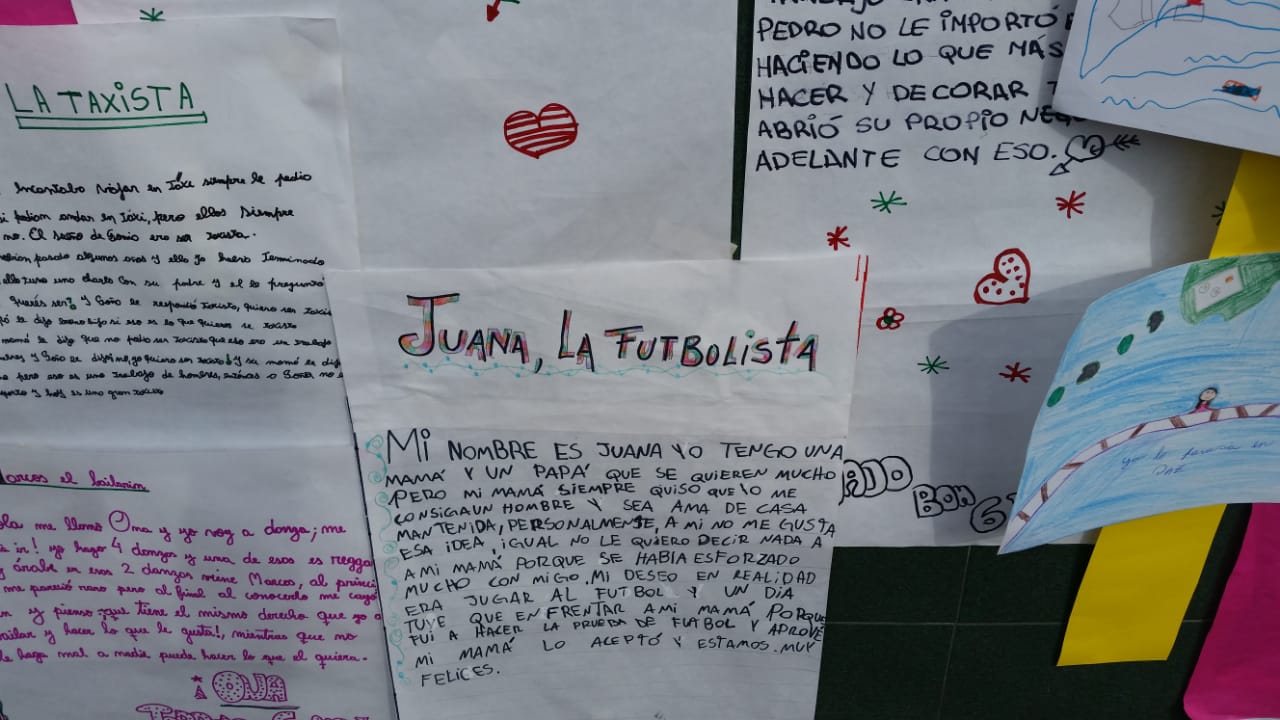 LA TAXISTA
Encantaba viajar en Táxi siempre le pedia
si podiam andar en Táxi, pero ellos siempre
no. El sueño de Sonia era ser taxista.
pasado algunos años y ella ya habia Terminado
ella tuvo una charla con su padre y el le preguntó
Querés ser? y Sonia le respondió Taxista, quiero ser taxis
le dijo bueno hija si eso es lo que quieres se taxista
mamá le dijo que no podia ser taxista que eso era un trabajo
y Sonia le dijo no, yo quiero ser taxista y su mamá le dijo
pero eso es una trabajo de hombres, Sonia no
y hoy es una gran taxista
Marcos el bailarin
Hola me llamo Oma y yo voy a danza; me
yo hago 4 danzas y una de esas es regga
y árabe en esas 2 danzas viene Marcos, al princi
me pareció raro pero al final al conocerlo me cayó
y pienso que tiene el mismo derecho que yo a
bailar y hacer lo que le gusta!, mientras que no
le haga mal a nadie puede hacer lo que el quiera.
PEDRO NO LE IMPORTÓ
HACIENDO LO QUE MÁS
HACER Y DECORAR
ABRIÓ SU PROPIO NEGO
ADELANTE CON ESO.
JUANA, LA FUTBOLISTA
MI NOMBRE ES JUANA YO TENGO UNA
MAMÁ Y UN PAPÁ QUE SE QUIEREN MUCHO
PERO MI MAMÁ SIEMPRE QUISO QUE YO ME
CONSIGA UN HOMBRE Y SEA AMA DE CASA
MANTENIDA, PERSONALMENTE, A MI NO ME GUSTA
ESA IDEA, IGUAL NO LE QUIERO DECIR NADA A
A MI MAMÁ PORQUE SE HABIA ESFORZADO
MUCHO CON MIGO. MI DESEO EN REALIDAD
ERA JUGAR AL FUTBOL Y UN DIA
TUVE QUE ENFRENTAR A MI MAMÁ PORQUE
FUI A HACER LA PRUEBA DE FUTBOL Y APROVÉ
MI MAMÁ LO ACEPTÓ Y ESTAMOS MUY
FELICES.
BON